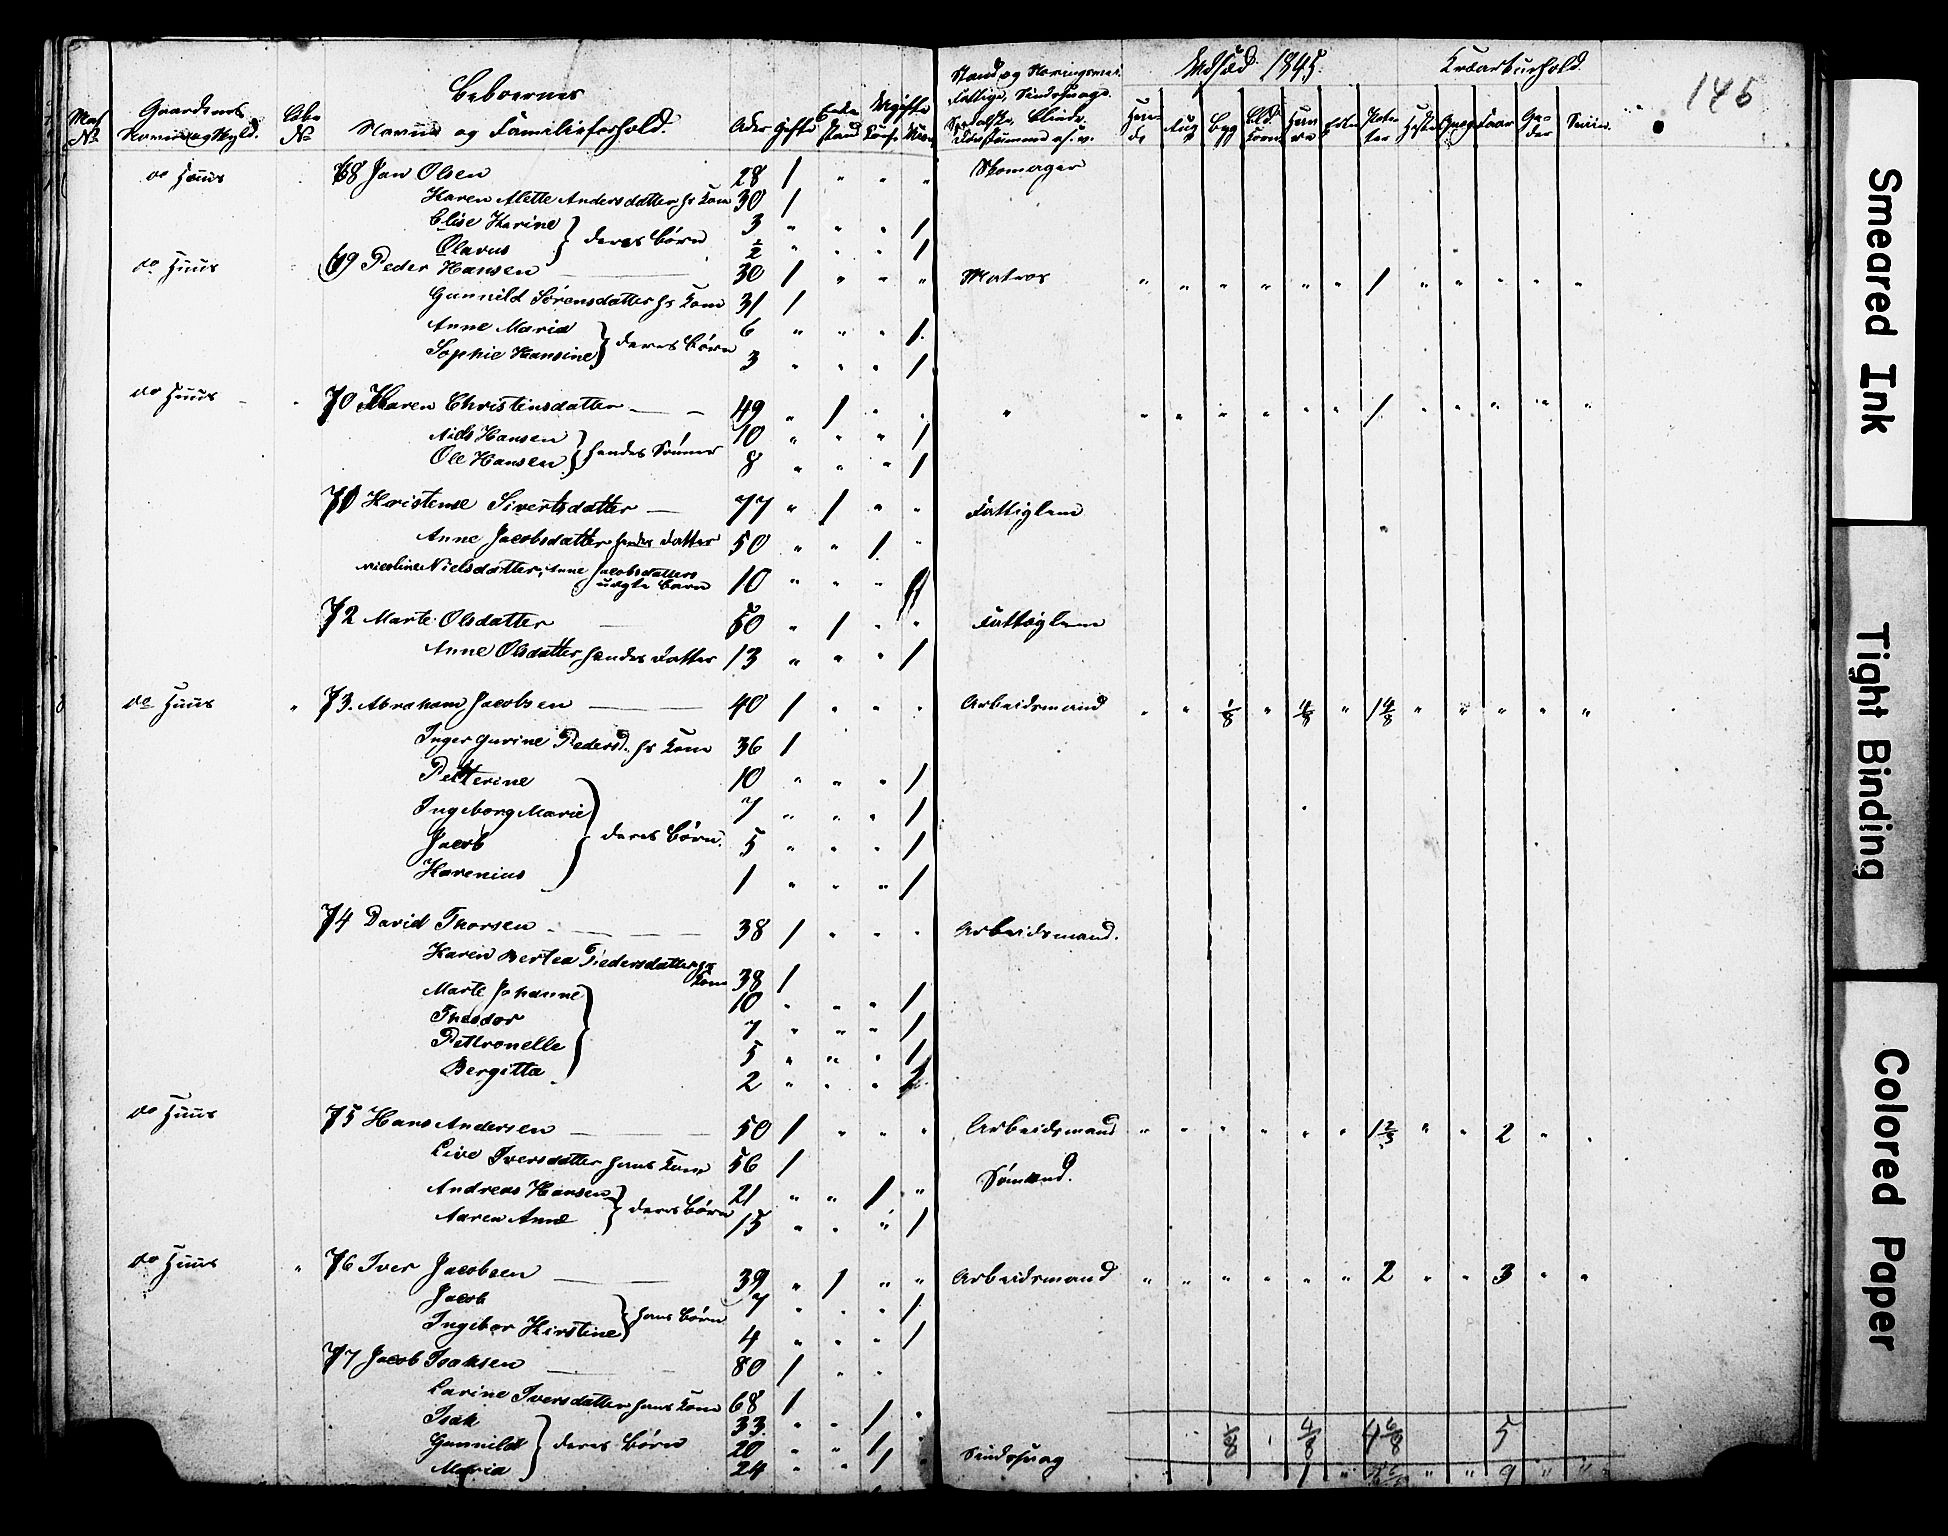 146
Udsæd 1845. Kreaturhold
Beboernes
Mat No Gaardenes Navn og Mgld. Løbe No Navne og Familieforhold. Alder Gifte Enke Stand Ugifte Stand og Næringsvei, Fattige, Sindssvage, Blinde, Døvstumme o.s.v. Byg Havre Heste Faar Sviin
do Huus 68 Jan Olsen 28 1 " " " Skomager
Karen Alette Andersdatter hs Kone 30 1
Elise Karine } deres Børn 3 " " " 1
Olavus ½ " " " 1
do Huus 69 Peder Hansen 30 1 " " " Matros " " " " " " 1 " " " " "
Gunnild Sørensdatter hs Kone 31 1
Anne Maria } deres Børn 6 " " " 1
Sophie Hansine 3 " " " 1
do Huus 70 Maren Christensdatter 49 " 1 " " " " " " " " " 1 " " " " "
Niels Hansen } hendes Sønner 10 " " " 1
Ole Hansen 8 " " " 1
71 Kristense Sivertsdatter 77 " 1 " " Fattiglem
Anne Jacobsdatter hendes Datter 50 " " 1 "
Nicoline Nielsdatter, Anne Jacobsdatters
uægte Barn 10 " " " 1
72 Marte Olsdatter 50 " 1 " " Fattiglem
Anne Olsdatter hendes Datter 13 " " " 1
do Huus " 73. Abraham Jacobsen 40 1 " " " Arbeidsmand " " 1/8 " 4/8 " 1 4/8 " " " " "
Inger Gurine Pedersd. hs Kone 36 1
Petterine 10 " " " 1
Ingeborg Marie 7 " " " 1
Jacob } deres Børn. 5 " " " 1
Karenius 1 " " " 1
74 David Thorsen 38 1 " " " Arbeidsmand.
Karen Bertea Pedersdatter hs
Kone 38 1
Marte Johanne 10 " " " 1
Theodor 7 " " " 1
Pettronelle 5 " " " 1
Bergitta 2 " " "
do Huus 75 Hans Andersen 50 1 " " " Arbeidsmand " " " " " " 1 2/3 " " 2 " "
Live Iversdatter hans Kone 56 1
Andreas Hansen } deres Børn 21 " " 1 " Sømand.
Maren Anne 15 " " " 1
do Huus " 76 Iver Jacobsen 39 " 1 " " Arbeidsmand " " " " " " 2 " " 3 " "
Jacob } hans Børn 7 " " " 1
Ingebor Kirstine 4 " " " 1
77 Jacob Isaksen 80 1 " "
Larine Iversdatter hans Kone 68 1
Isak 33 " " 1
Gunnild } deres Børn 20 " " 1 1/8 4/8 4 6/8 5
Maria 24 " " 1 Sindssvag 9 " " "
Smeared Ink
Tight Binding
Colored Paper